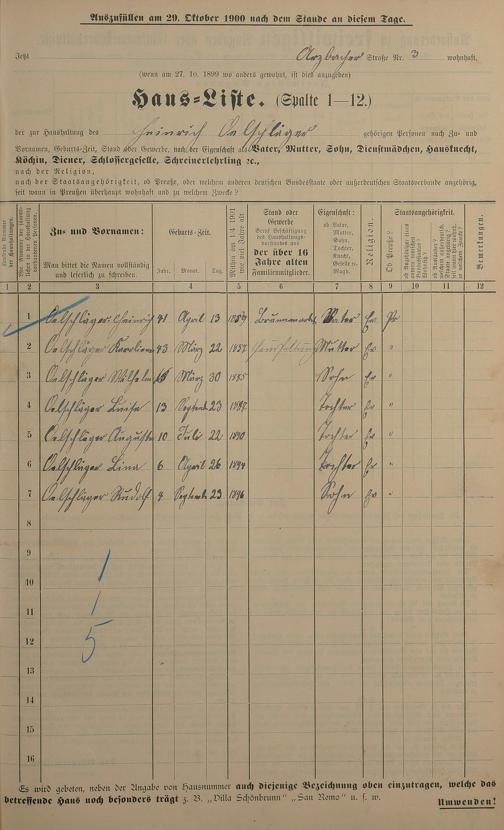 Auszufüllen am 29. Oktober 1900 nach dem Stande an diesem Tage.
Jetzt Arzbacher Straße Nr. 3 wohnhaft,
(wenn am 27. 10. 1899 wo anders gewohnt, ist dies anzugeben)
Haus-Liste. (Spalte 1—12.)
der zur Haushaltung des Heinrich Oelschläger gehörigen Personen nach Zu- und
Vornamen, Geburts-Zeit, Stand oder Gewerbe, nach der Eigenschaft als Vater, Mutter, Sohn, Dienstmädchen, Hausknecht,
Köchin, Diener, Schlossergeselle, Schreinerlehrling ec.,
nach der Religion,
nach der Staatsangehörigkeit, ob Preuße, oder welchem anderen deutschen Bundesstaate oder außerdeutschen Staatsverbande angehörig,
seit wann in Preußen überhaupt wohnhaft und zu welchem Zwecke?
Zu- und Vornamen:
Man bittet die Namen vollständig und leserlich zu schreiben.
Geburts-Zeit.
Jahr. Monat. Tag.
Mithin am 1/4 1901 wie viel Jahre alt.
Stand oder Gewerbe
der über 16 Jahre alten Familienmitglieder.
Eigenschaft:
ob Vater, Mutter, Sohn, Tochter, Knecht, Geselle etc. Magd.
Religion.
Staatsangehörigkeit.
Ob Preuße?
Bemerkungen.
1 2 3 4 5 6 7 8 9 10 11 12
1 Oelschläger Heinrich 41 April 13 1859 Vater Ev Pr
2 Oelschläger Karoline 43 März 22 1857 Mutter Ev "
3 Oelschläger Wilhelm März 30 1885 Sohn Ev "
4 Oelschläger Luise 13 Septemb 23 1887 Tochter Ev "
5 Oelschläger Auguste 10 Juli 22 1890 Tochter Ev "
6 Oelschläger Lina 6 April 26 1894 Tochter Ev "
7 Oelschläger Rudolf 4 Septemb 23 1896 Sohn Ev "
8
9
10
11
12
13
14
15
16
1
1
5
Es wird gebeten, neben der Angabe von Hausnummer auch diejenige Bezeichnung oben einzutragen, welche das
betreffende Haus noch besonders trägt z. B. „Villa Schönbrunn" „San Remo" u. s. w.
Umwenden!